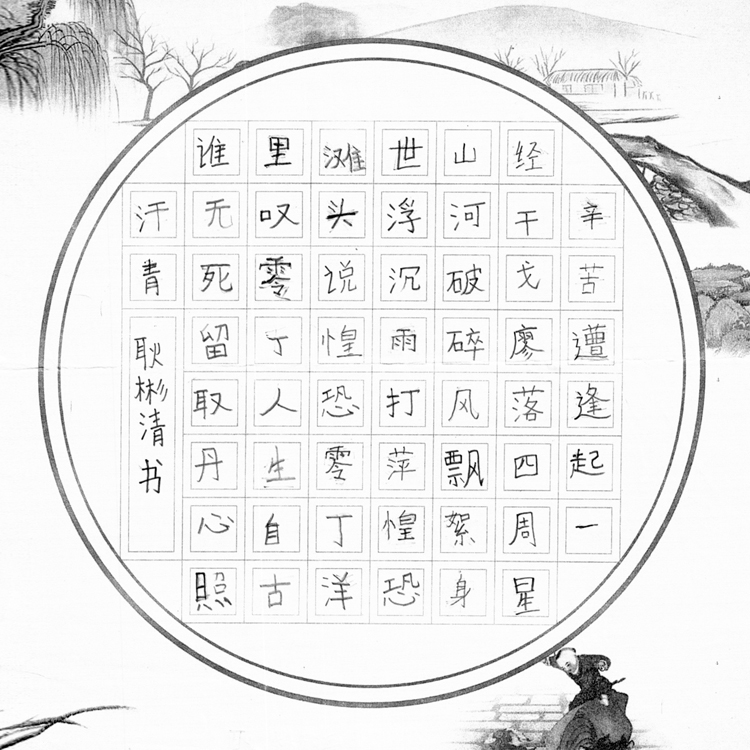 辛苦遭逢起一
经干戈廖落四周星
山河破碎风飘絮身
世浮沉雨打萍惶恐
滩头说惶恐零丁洋
里叹零丁人生自古
谁无死留取丹心照
汗青
耿彬清书